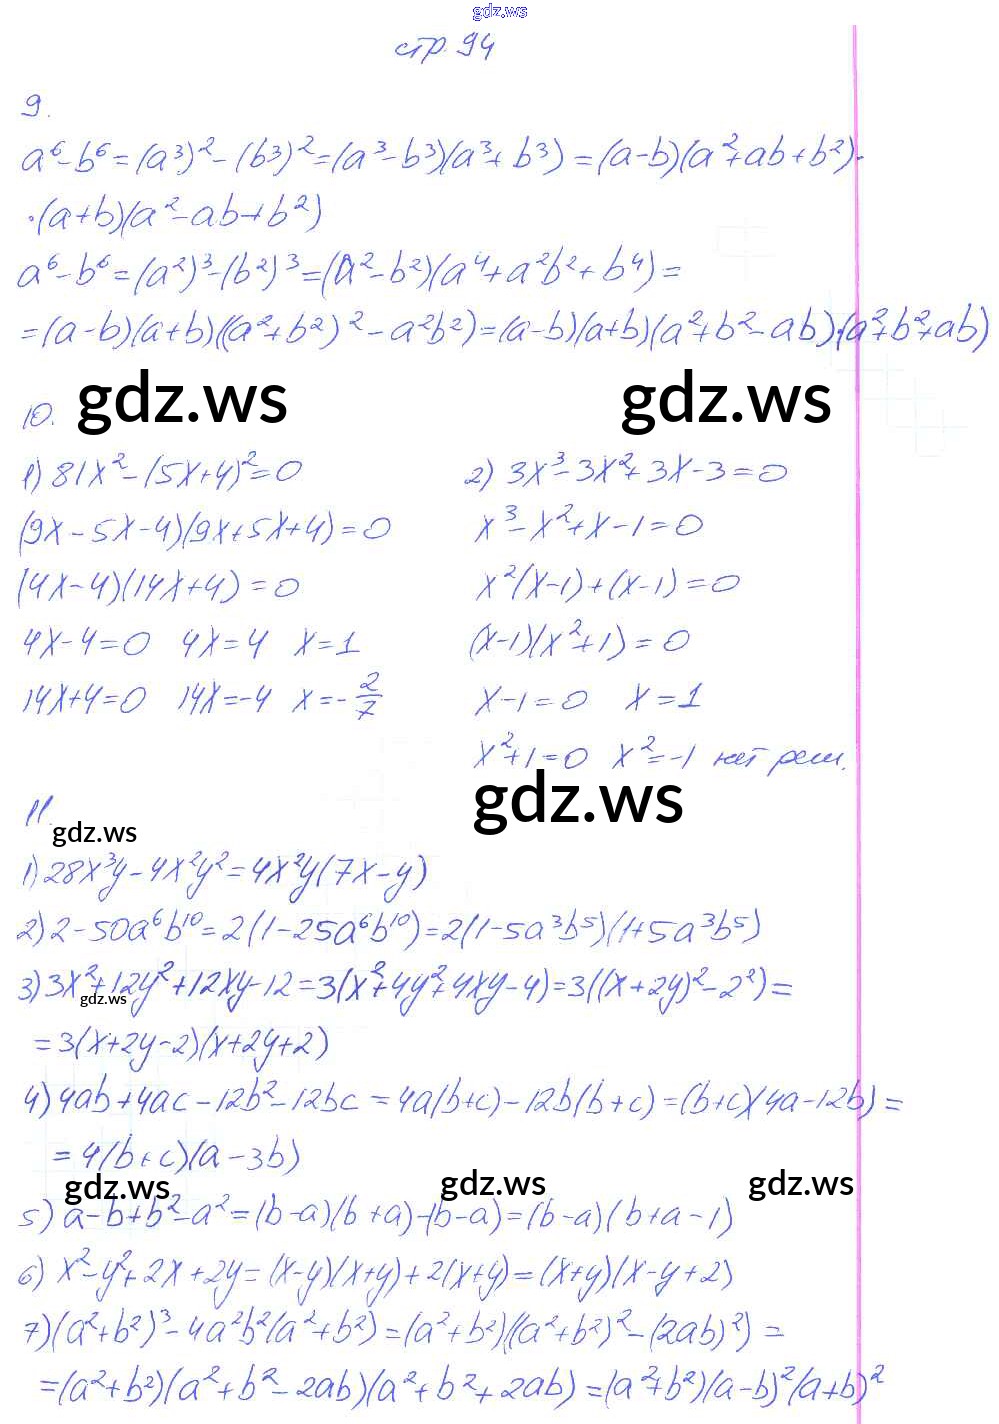 gdz.ws
стр. 94
9.
a⁶-b⁶=(a³)²-(b³)²=(a³-b³)(a³+b³)=(a-b)(a²+ab+b²)·
·(a+b)(a²-ab+b²)
a⁶-b⁶=(a²)³-(b²)³=(a²-b²)(a⁴+a²b²+b⁴)=
=(a-b)(a+b)((a²+b²)²-a²b²)=(a-b)(a+b)(a²+b²-ab)·(a²+b²+ab)
gdz.ws gdz.ws
10.
1) 81x²-(5x+4)²=0
(9x-5x-4)(9x+5x+4)=0
(4x-4)(14x+4)=0
4x-4=0 4x=4 x=1
14x+4=0 14x=-4 x=-2/7
2) 3x³-3x²+3x-3=0
x³-x²+x-1=0
x²(x-1)+(x-1)=0
(x-1)(x²+1)=0
x-1=0 x=1
x²+1=0 x²=-1 нет реш.
gdz.ws
11.
gdz.ws
1) 28x³y-4x²y²=4x²y(7x-y)
2) 2-50a⁶b¹⁰=2(1-25a⁶b¹⁰)=2(1-5a³b⁵)(1+5a³b⁵)
3) 3x²+12y²+12xy-12=3(x²+4y²+4xy-4)=3((x+2y)²-2²)=
gdz.ws
=3(x+2y-2)(x+2y+2)
4) 4ab+4ac-12b²-12bc=4a(b+c)-12b(b+c)=(b+c)(4a-12b)=
=4(b+c)(a-3b)
gdz.ws gdz.ws gdz.ws
5) a-b+b²-a²=(b-a)(b+a)-(b-a)=(b-a)(b+a-1)
6) x²-y²+2x+2y=(x-y)(x+y)+2(x+y)=(x+y)(x-y+2)
7) (a²+b²)³-4a²b²(a²+b²)=(a²+b²)((a²+b²)²-(2ab)²)=
=(a²+b²)(a²+b²-2ab)(a²+b²+2ab)=(a²+b²)(a-b)²(a+b)²